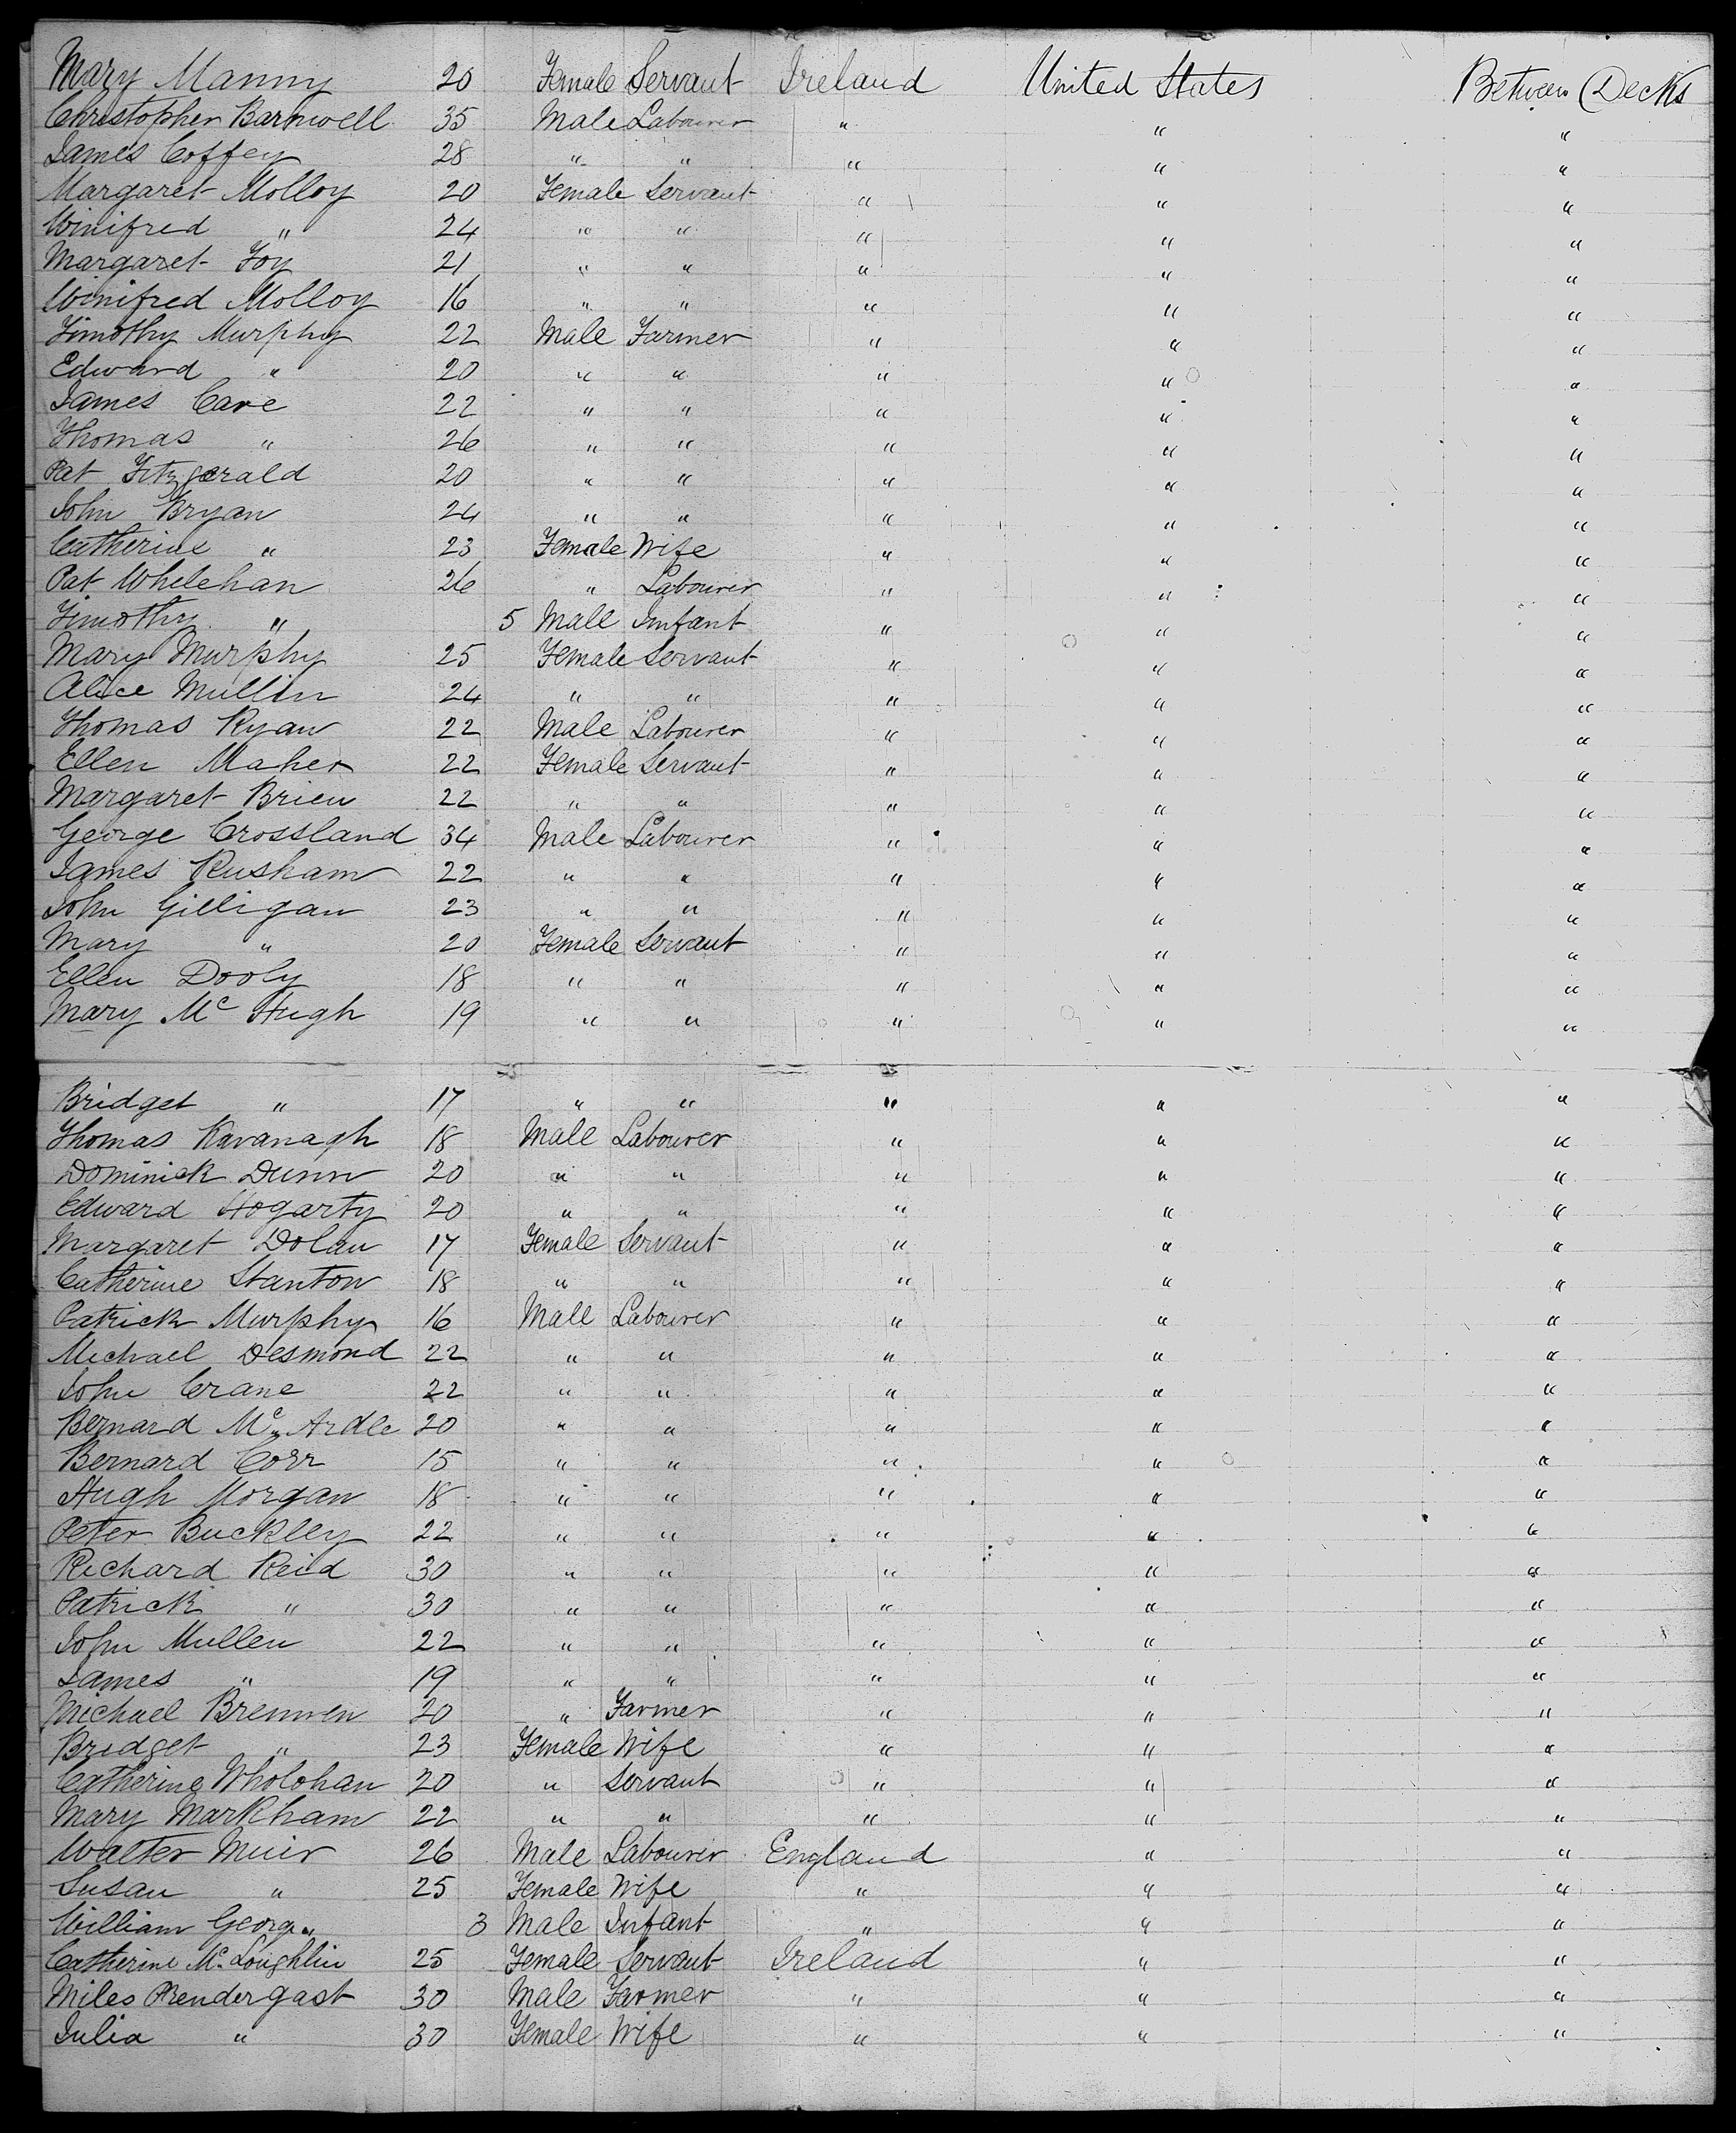 Mary Manny 20 Female Servant Ireland United States Between Decks
Christopher Barnwell 35 Male Labourer " " "
James Coffey 28 " " " " "
Margaret Molloy 20 Female Servant " " "
Winifred " 24 " " " " "
Margaret Foy 21 " " " " "
Winifred Molloy 16 " " " " "
Timothy Murphy 22 Male Farmer " " "
Edward " 20 " " " " "
James Care 22 " " " " "
Thomas " 26 " " " " "
Pat Fitzgerald 20 " " " " "
John Bryan 24 " " " " "
Catherine " 23 Female Wife " " "
Pat Whelehan 26 " Labourer " " "
Timothy " 5 Male Infant " " "
Mary Murphy 25 Female Servant " " "
Alice Mullin 24 " " " " "
Thomas Ryan 22 Male Labourer " " "
Ellen Maher 22 Female Servant " " "
Margaret Brien 22 " " " " "
George Crossland 34 Male Labourer " " "
James Rusham 22 " " " " "
John Gilligan 23 " " " " "
Mary " 20 Female Servant " " "
Ellen Dooly 18 " " " " "
Mary Mc Hugh 19 " " " " "
Bridget " 17 " " " " "
Thomas Kavanagh 18 Male Labourer " " "
Dominick Dunn 20 " " " " "
Edward Hogarty 20 " " " " "
Margaret Dolan 17 Female Servant " " "
Catherine Stanton 18 " " " " "
Patrick Murphy 16 Male Labourer " " "
Michael Desmond 22 " " " " "
John Crane 22 " " " " "
Bernard Mc Ardle 20 " " " " "
Bernard Corr 15 " " " " "
Hugh Morgan 18 " " " " "
Peter Buckley 22 " " " " "
Richard Reid 30 " " " " "
Patrick " 30 " " " " "
John Mullen 22 " " " " "
James " 19 " " " " "
Michael Brennen 20 " Farmer " " "
Bridget " 23 Female Wife " " "
Catherine Wholohan 20 " Servant " " "
Mary Markham 22 " " " " "
Walter Muir 26 Male Labourer England " "
Susan " 25 Female Wife " " "
William George " 3 Male Infant " " "
Catherine Mc Loughlin 25 Female Servant Ireland " "
Miles Prendergast 30 Male Farmer " " "
Julia " 30 Female Wife " " "